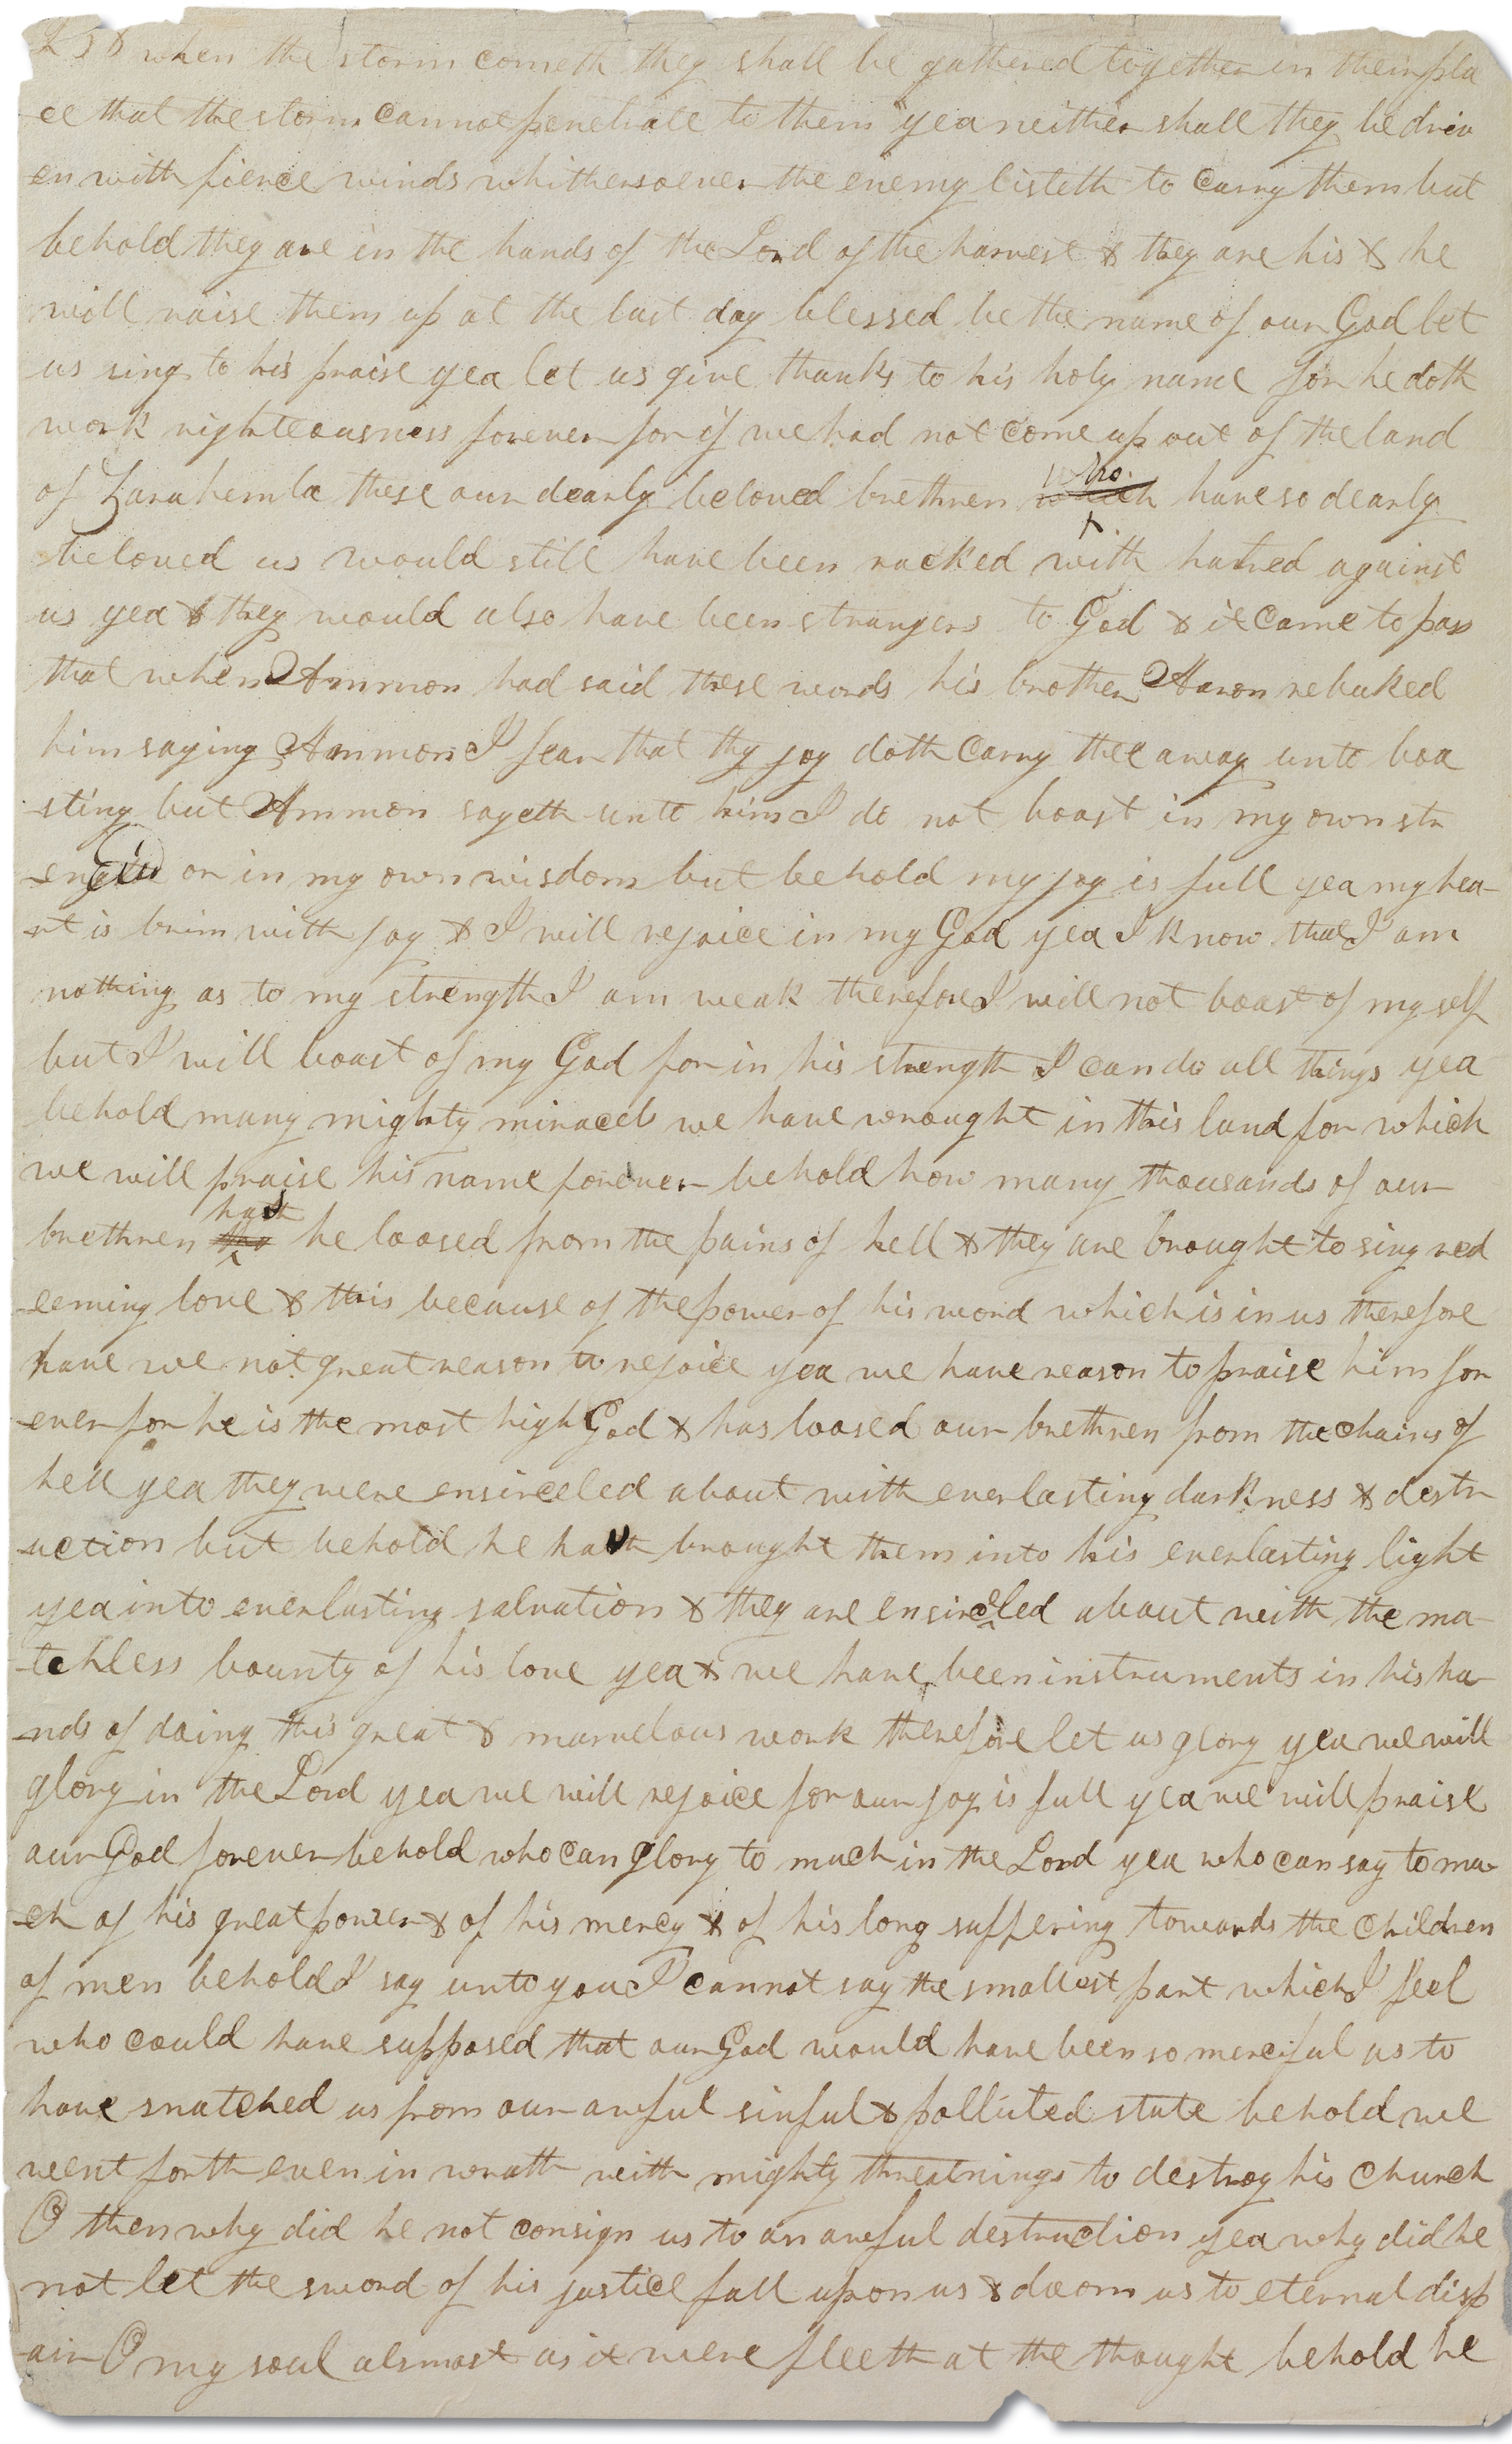 238 when the storm cometh they shall be gathered together in their pla
ce that the storm cannot penetrate to them yea neither shall they be driv
en with fierce winds whithersoever the enemy listeth to carry them but
behold they are in the hands of the Lord of the harvest & they are his & he
will raise them up at the last day blessed be the name of our God let
us sing to his praise yea let us give thanks to his holy name for he doth
work righteousness forever for if we had not come up out of the land
of Zarahemla these our dearly beloved brethren which who have so dearly
beloved us would still have been racked with hatred against
us yea & they would also have been strangers to God & it came to pass
that when Ammon had said these words his brother Aaron rebuked
him saying Ammon I fear that thy joy doth carry thee away unto boa
sting but Ammon sayeth unto him I do not boast in my own str
ength or in my own wisdom but behold my joy is full yea my hea-
rt is brim with joy & I will rejoice in my God yea I know that I am
nothing as to my strength I am weak therefore I will not boast of myself
but I will boast of my God for in his strength I can do all things yea
behold many mighty miracels we have wrought in this land for which
we will praise his name forever behold how many thousands of our
brethren hath he loosed from the pains of hell & they are brought to sing red
eeming love & this because of the power of his word which is in us therefore
have we not great reason to rejoice yea we have reason to praise him for
ever for he is the most high God & has loosed our brethren from the chains of
hell yea they were ensirceled about with everlasting darkness & destr
uction but behold he hath brought them into his everlasting light
yea into everlasting salvation & they are ensircled about with the ma-
tchless bounty of his love yea & we have been instruments in his ha-
nds of doing this great & marvelous work therefore let us glory yea we will
glory in the Lord yea we will rejoice for our joy is full yea we will praise
our God forever behold who can glory to much in the Lord yea who can say to mu-
ch of his great power & of his mercy & of his long suffering towards the children
of men behold I say unto you I cannot say the smallest part which I feel
who could have supposed that our God would have been so merciful as to
have snatched us from our awful sinful & polluted state behold we
went forth even in wrath with mighty threatnings to destroy his church
O then why did he not consign us to an awful destruction yea why did he
not let the sword of his justice fall upon us & doom us to eternal disp
air O my soul alsmost as it were fleeth at the thought behold he